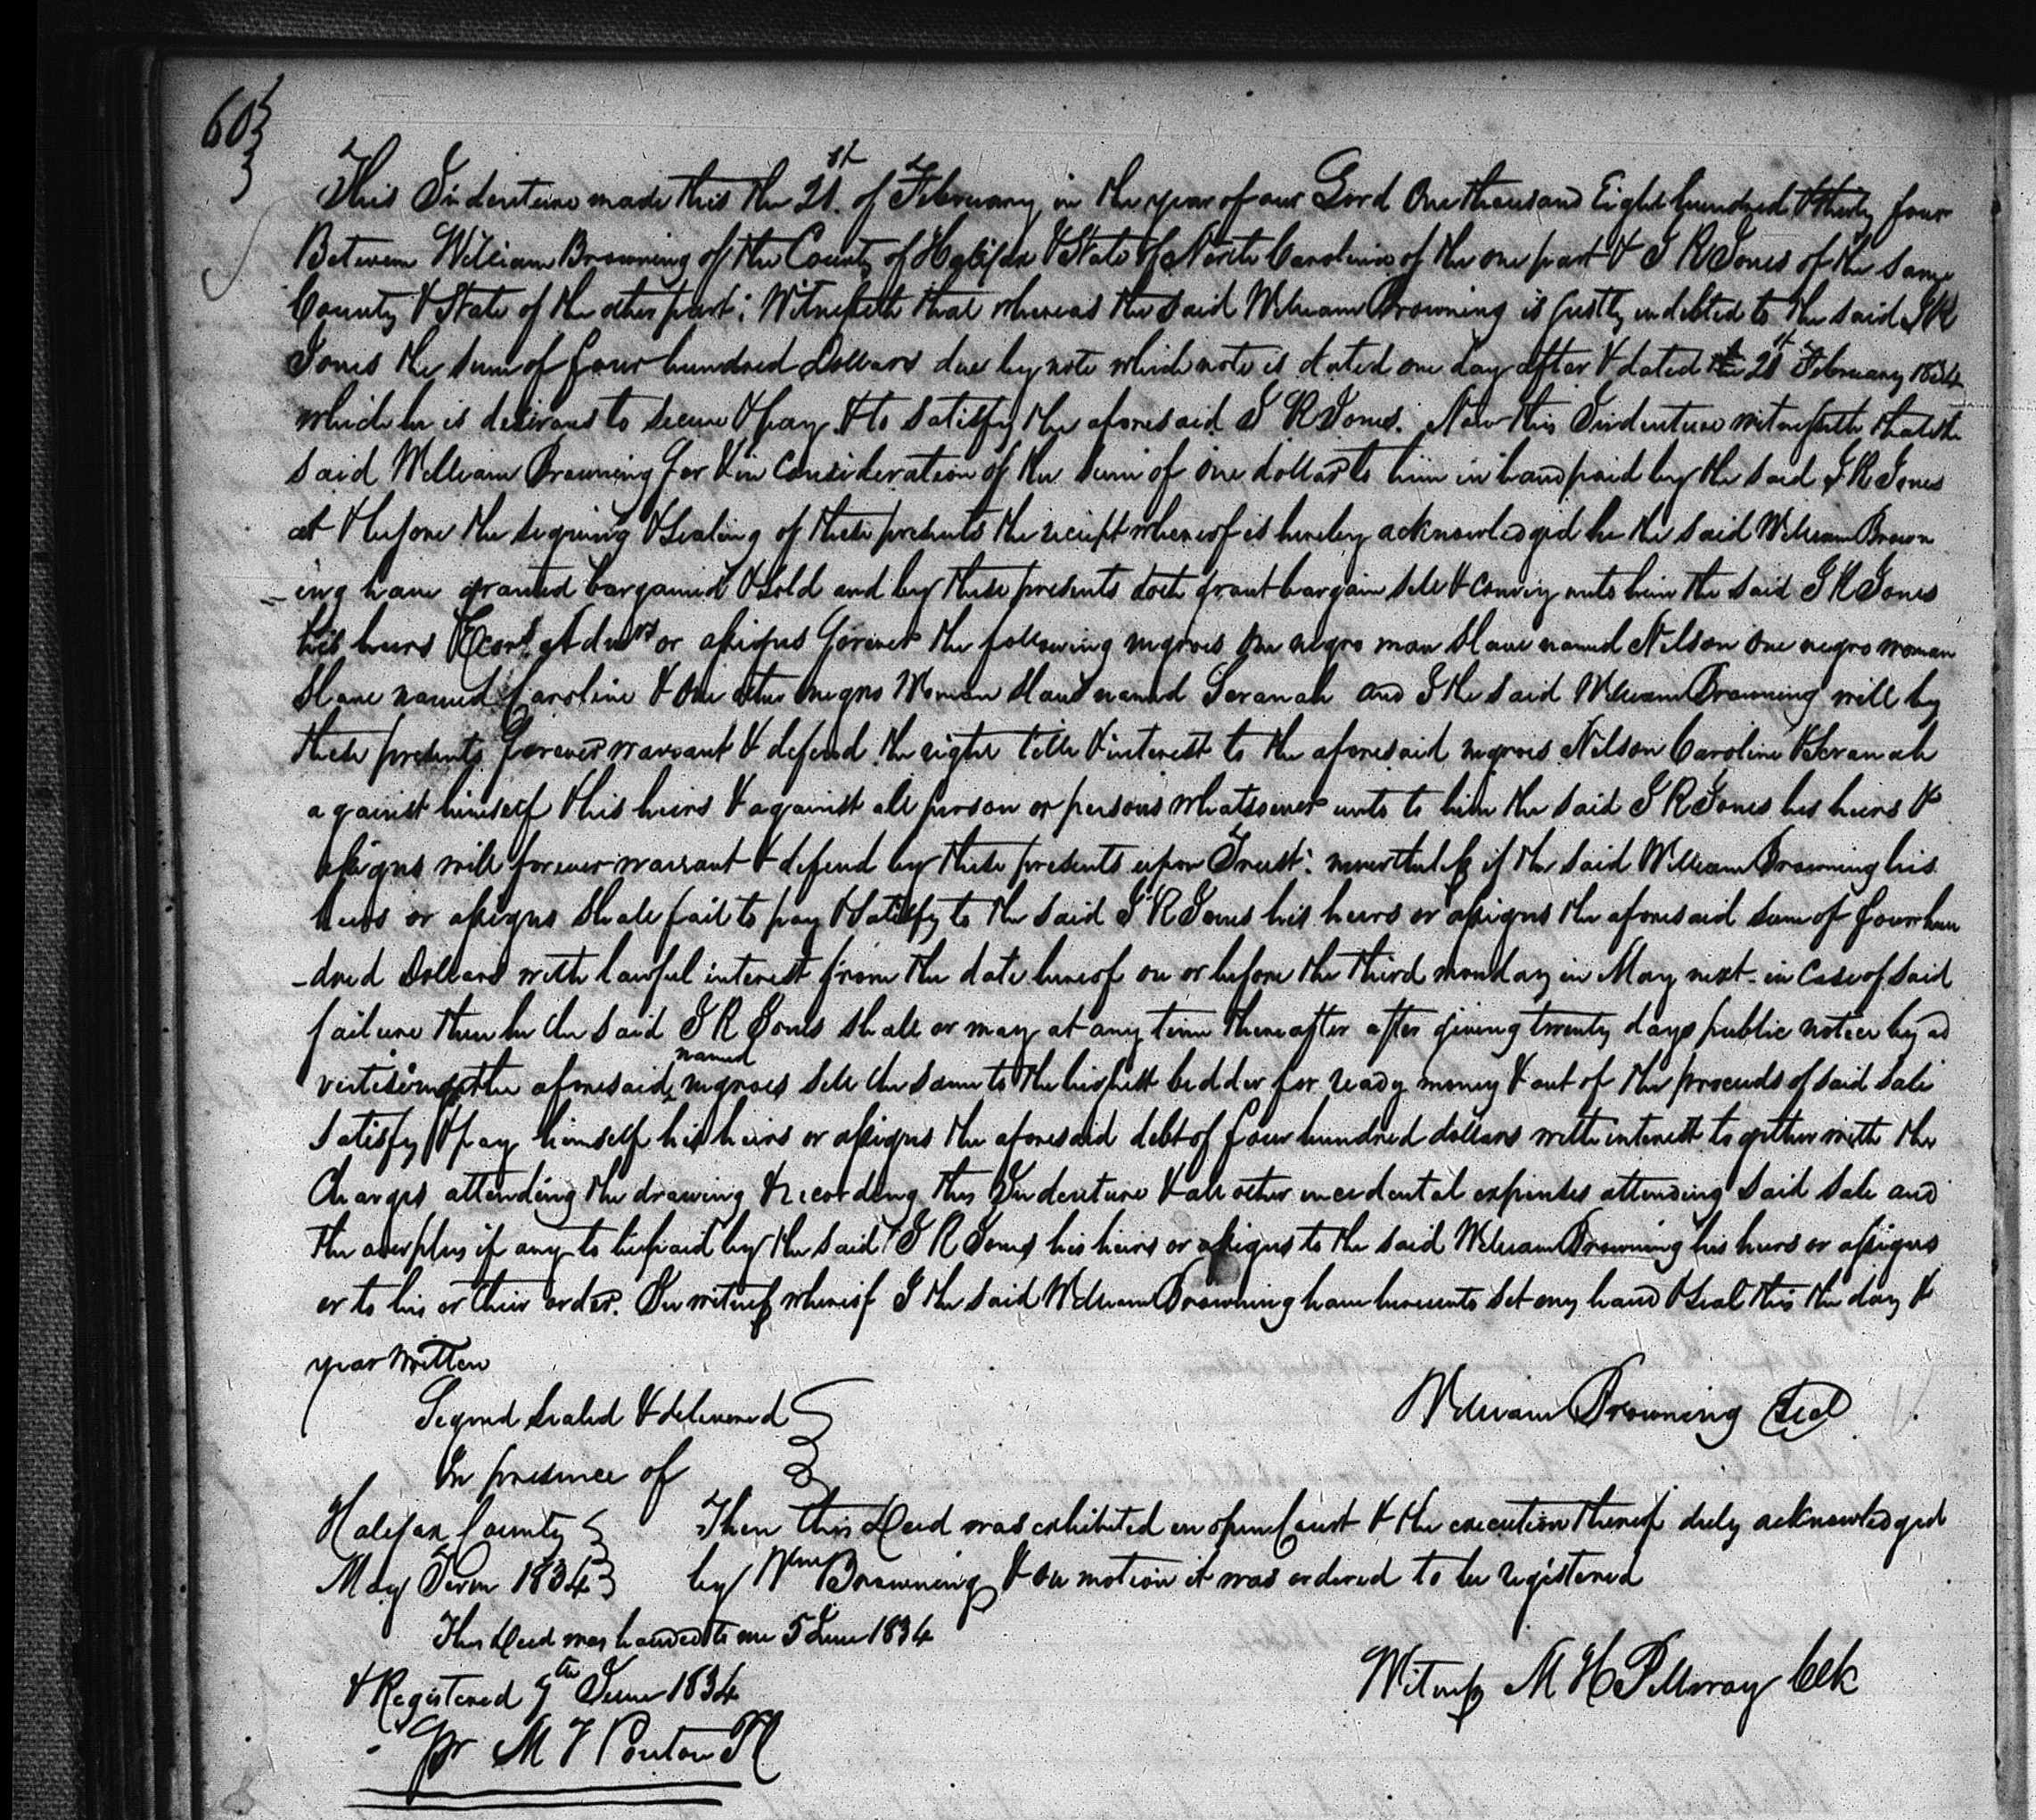 60
This Indenture made this the 21st. of February in the year of our Lord One thousand Eight hundred & thirty four
Between William Browning of the County of Halifax & State of North Carolina of the one part & J R Jones of the same
County & State of the other part; Witnesseth that whereas the said William Browning is justly indebted to the said J R
Jones the sum of four hundred Dollars due by note which note is dated one day after & dated the 21st February 1834
which he is desirous to secure & pay & to satisfy the aforesaid J R Jones. Now this Indenture witnesseth that the
said William Browning for & in consideration of the sum of one dollar to him in hand paid by the said J R Jones
at & before the signing & sealing of these presents the receipt whereof is hereby acknowledged he the said William Brown
-ing have granted bargained & sold and by these presents doth grant bargain sell & convey unto him the said J R Jones
his heirs Exors. Admrs or assigns forever the following negroes One negro man slave named Nelson one negro woman
slave named Caroline & One other negro Woman slave named Soranah and I the said William Browning will by
these presents forever warrant & defend the right title & interest to the aforesaid negroes Nelson Caroline & Soranah
against himself & his heirs & against all person or persons whatsoever unto to him the said J R Jones his heirs &
assigns will forever warrant & defend by these presents upon Trust; nevertheless if the said William Browning his
heirs or assigns shall fail to pay & satisfy to the said J R Jones his heirs or assigns the aforesaid sum of four hun
-dred Dollars with lawful interest from the date hereof on or before the third monday in May next - in case of said
failure then he the said J R Jones shall or may at any time thereafter after giving twenty days public notice by ad
vertising the aforesaid named negroes sell the same to the highest bidder for ready money & out of the proceeds of said sale
satisfy & pay himself his heirs or assigns the aforesaid debt of four hundred dollars with interest together with the
Charges attending the drawing & recording this Indenture & all other incidental expenses attending said sale and
the overplus if any to be paid by the said J R Jones his heirs or assigns to the said William Browning his heirs or assigns
or to his or their order. In witness whereof I the said William Browning have hereunto set my hand & seal this the day &
year written
Signed sealed & delivered
William Browning Seal
In presence of
Halifax County
Then this Deed was exhibited in open Court & the execution thereof duly acknowledged
May Term 1834
by Wm Browning & on motion it was ordered to be registered
This Deed was handed to me 5 June 1834
& Registered 9th June 1834
Witness M H Pettway Clk
Pr M T Ponton R